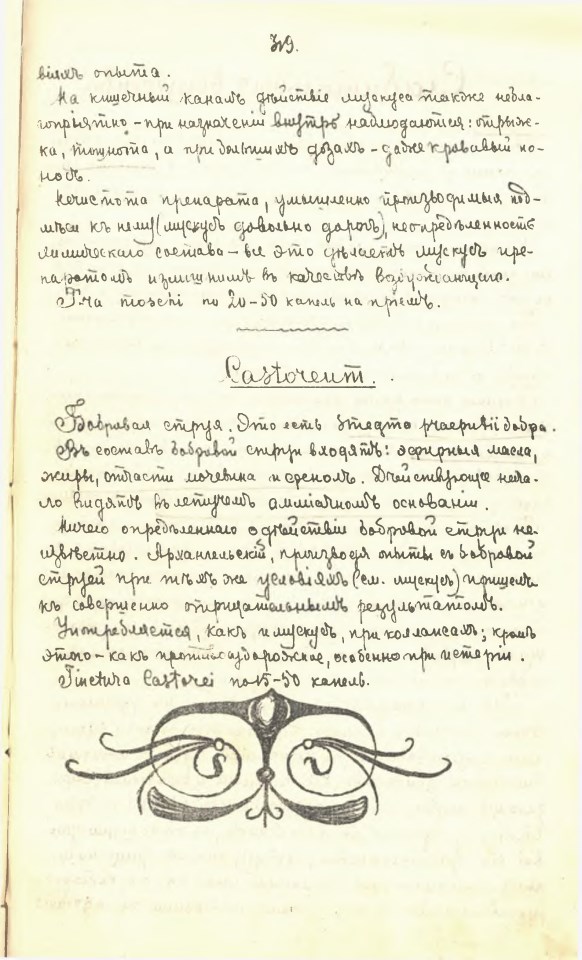 319.
віяхъ опыта.
На кишечный каналъ дѣйствіе мускуса также небла-
гопріятно - при назначеніи внутрь наблюдаются: отрыж-
ка, тошнота, а при большихъ дозахъ - даже кровавый по-
носъ.
Нечистота препарата, умышленно производимыя под-
мѣси къ нему (мускусъ довольно дорогъ), неопредѣленность
химическаго состава - все это дѣлаетъ мускусъ пре-
паратомъ излишнимъ въ качествѣ возбуждающаго.
T-ra moschi по 20-50 капель на пріемъ.
Castoreum.
Бобровая струя. Это есть smegma praeputii бобра.
Въ составъ бобровой струи входятъ: эфирныя масла,
жиры, отчасти мочевина и фенолъ. Дѣйствующее нача-
ло видятъ въ летучемъ амміачномъ основаніи.
Ничего опредѣленнаго о дѣйствіи бобровой струи не-
извѣстно. Архангельскій, производя опыты съ бобровой
струей при тѣхъ же условіяхъ (см. мускусъ) пришелъ
къ совершенно отрицательнымъ результатамъ.
Употребляется, какъ и мускусъ, при коллапсахъ; кромѣ
этого - какъ противосудорожное, особенно при истеріи.
Tinctura Castorei по 15-50 капель.